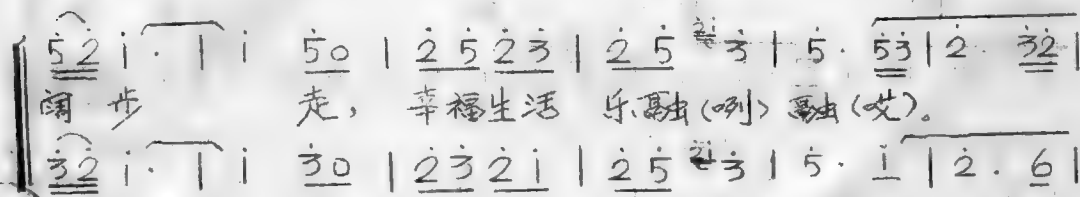 5̇2̇ i̇· | i̇ 5̇0 | 2̇5̇ 2̇3̇ | 2̇5̇ 2̇i̇ 3̇ | 5̇· 5̇3̇ | 2̇· 3̇2̇ |
阔步 走，幸福生活 乐融(咧)融(哎)。
3̇2̇ i̇· | i̇ 3̇0 | 2̇3̇ 2̇i̇ | 2̇5̇ 2̇i̇ 3̇ | 5̇· i̇ | 2̇· 6 |